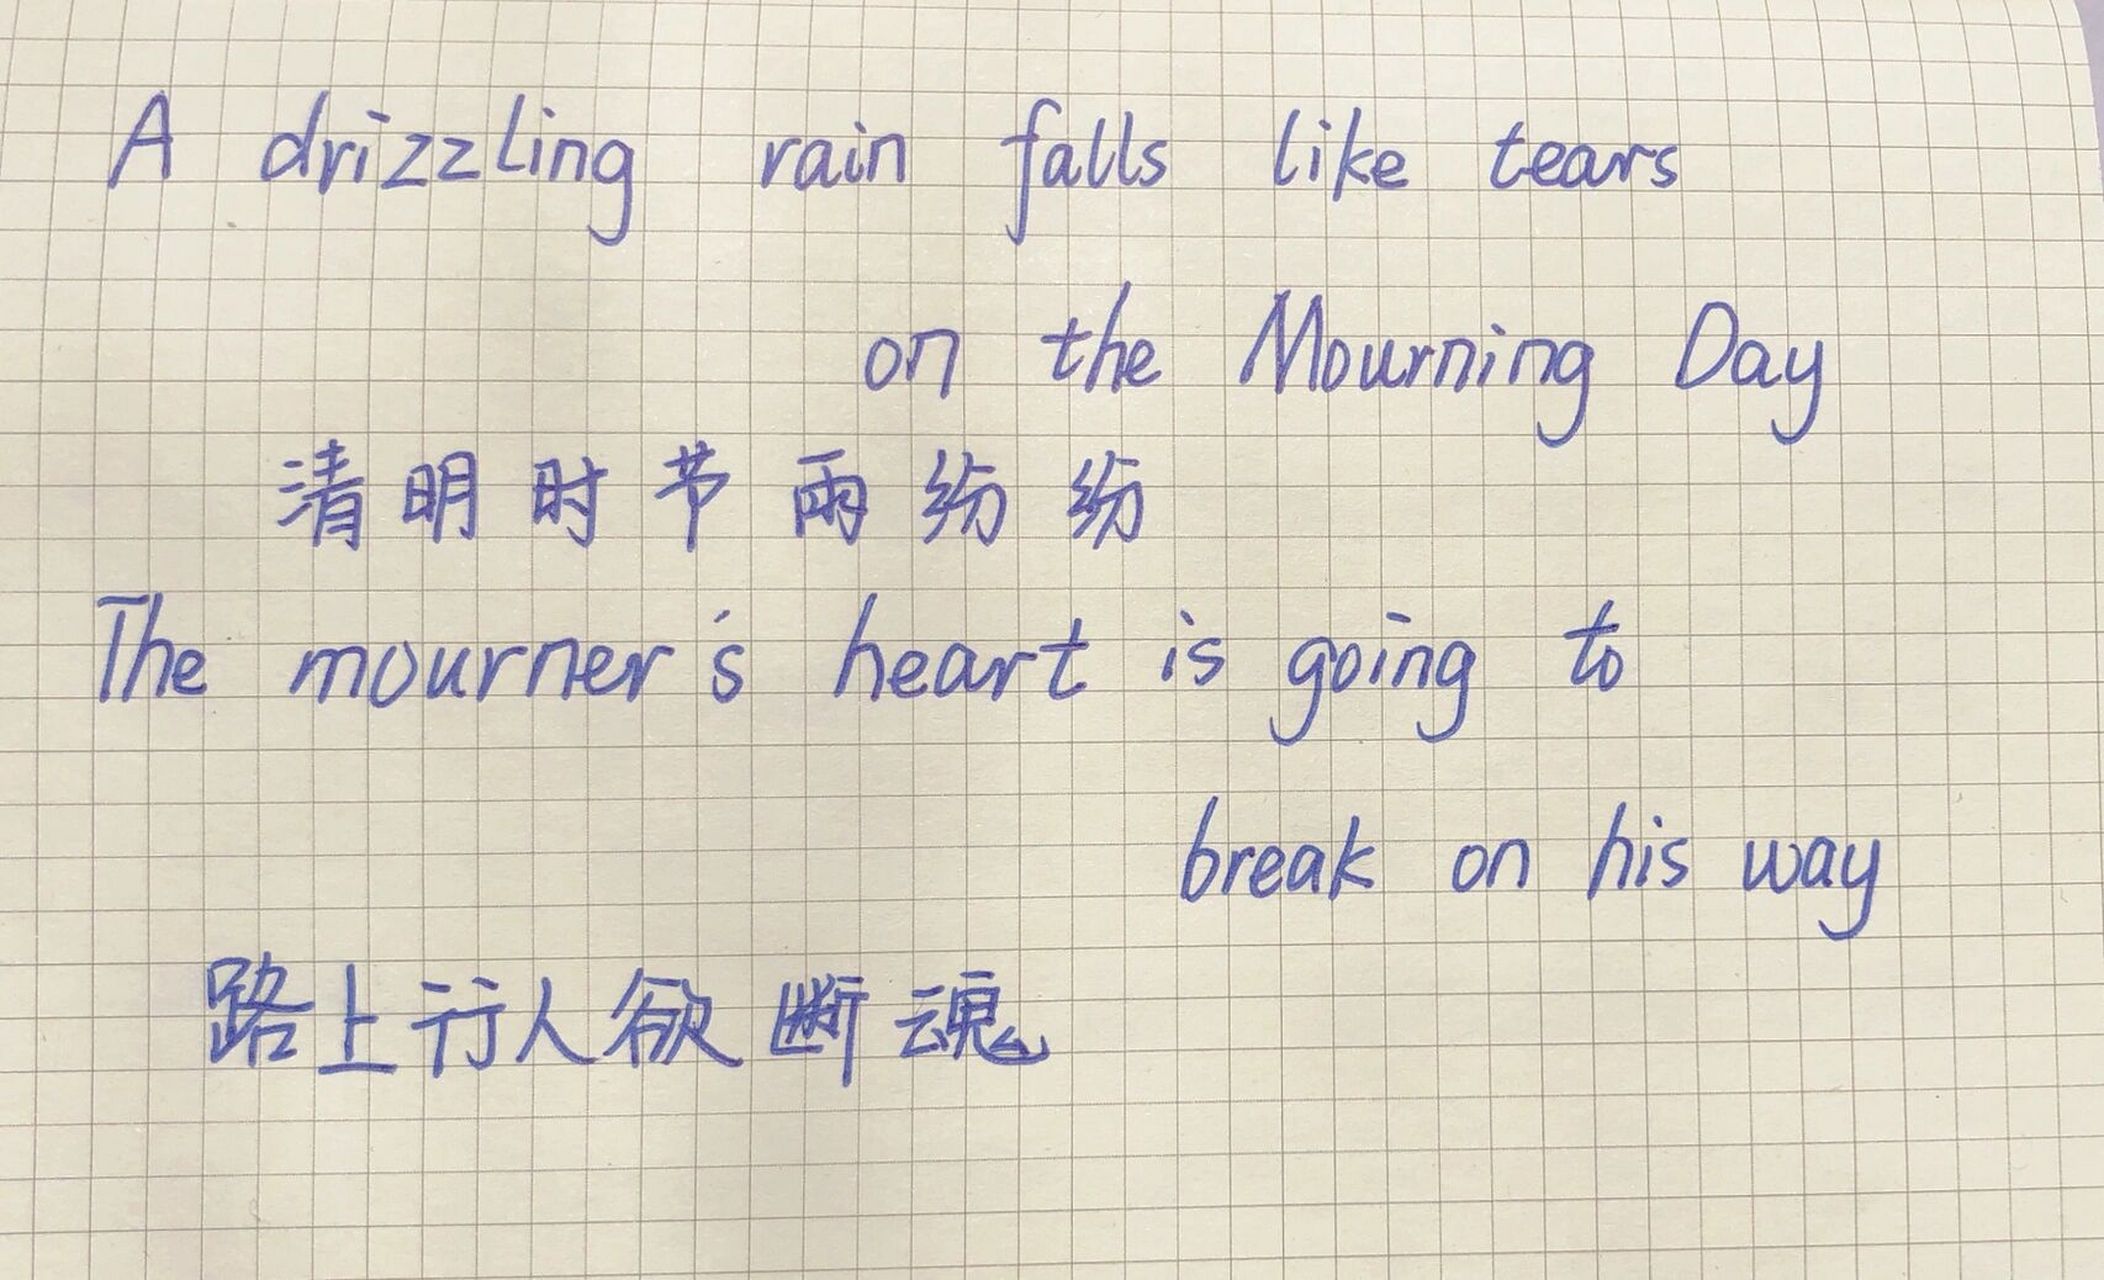 A drizzling rain falls like tears
on the Mourning Day
清明时节雨纷纷
The mourner's heart is going to
break on his way
路上行人欲断魂